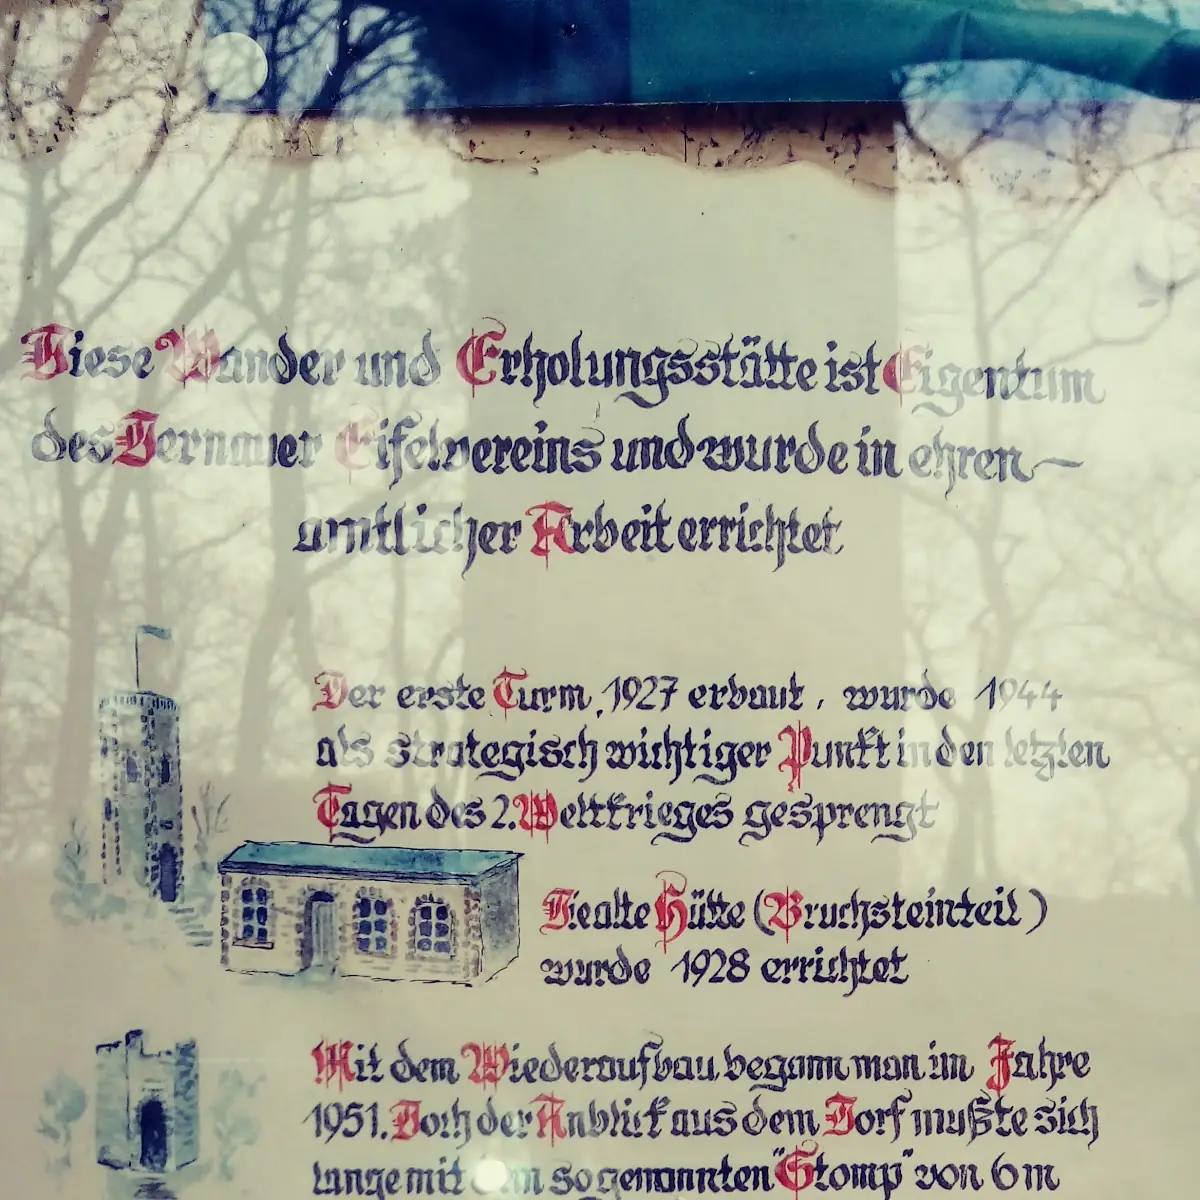 Diese Wander und Erholungsstätte ist Eigentum
des Dernauer Eifelvereins und wurde in ehren-
amtlicher Arbeit errichtet
Der erste Turm, 1927 erbaut, wurde 1944
als strategisch wichtiger Punkt in den letzten
Tagen des 2. Weltkrieges gesprengt
Die alte Hütte (Bruchsteinteil)
wurde 1928 errichtet
Mit dem Wiederaufbau begann man im Jahre
1951. Doch der Anblick aus dem Dorf mußte sich
lange mit dem sogenannten "Stomp" von 6m